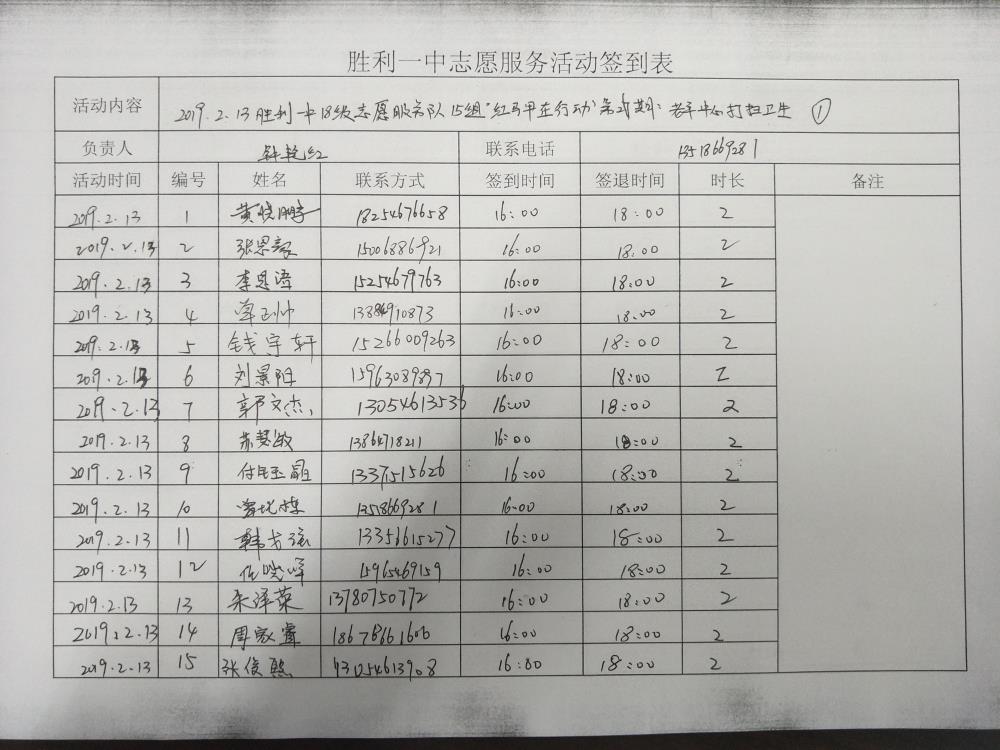 胜利一中志愿服务活动签到表
活动内容 2019.2.13胜利一中18级志愿服务队15组"红马甲在行动"第 期: 老年中心打扫卫生 ①
负责人 红 联系电话 13518669281
活动时间 编号 姓名 联系方式 签到时间 签退时间 时长 备注
2019.2.13 1 黄晓鹏 18254676658 16:00 18:00 2
2019.2.13 2 张恩豪 15006886921 16:00 18:00 2
2019.2.13 3 李思语 15254679763 16:00 18:00 2
2019.2.13 4 16:00 18:00 2
2019.2.13 5 钱宇轩 15266009263 16:00 18:00 2
2019.2.13 6 刘景阳 15963089897 16:00 18:00 2
2019.2.13 7 郭文杰 13054613536 16:00 18:00 2
2019.2.13 8 苏慧敏 13864718211 16:00 18:00 2
2019.2.13 9 付钰晶 13371515626 16:00 18:00 2
2019.2.13 10 13518669281 16:00 18:00 2
2019.2.13 11 13351615277 16:00 18:00 2
2019.2.13 12 任晓峰 15965469159 16:00 18:00 2
2019.2.13 13 朱泽荣 13780750772 16:00 18:00 2
2019.2.13 14 周家睿 18678661606 16:00 18:00 2
2019.2.13 15 张俊熙 13054613908 16:00 18:00 2